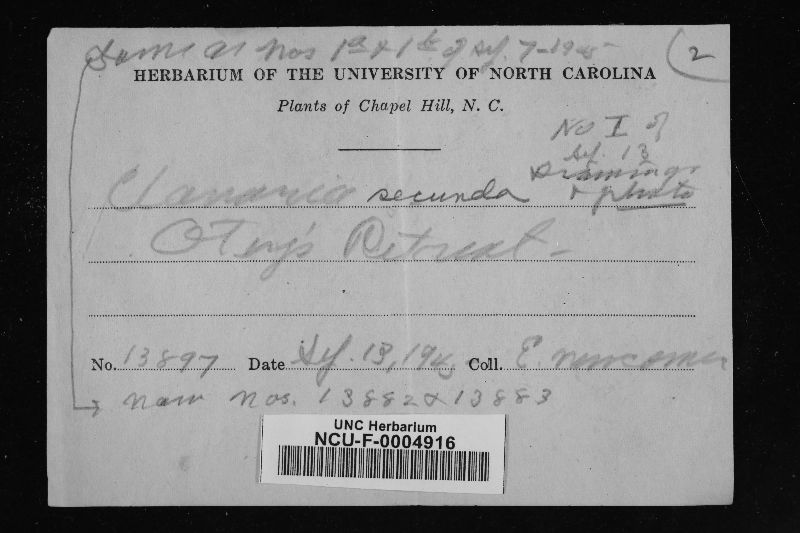 Same as Nos 1a & 1b of Sep. 7-1945
2
HERBARIUM OF THE UNIVERSITY OF NORTH CAROLINA
Plants of Chapel Hill, N. C.
No I of
Sep. 13
Drawings
& photo
Clavaria secunda
Otey's Retreat
No. 13897 Date Sep. 13, 1945 Coll. E. Newcomer
now nos. 13882 & 13883
UNC Herbarium
NCU-F-0004916